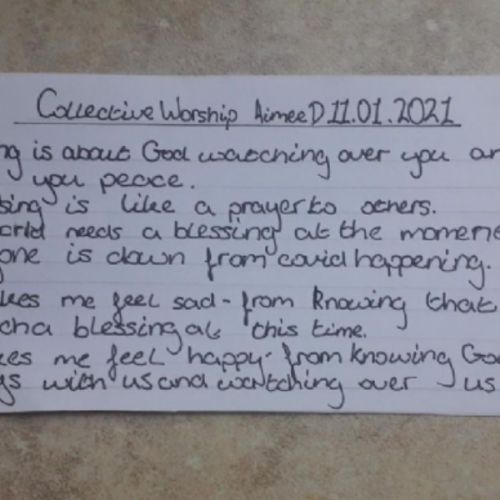 Collective Worship Aimee D 11.01.2021
ng is about God watching over you an
you peace.
sing is like a prayer to others.
orld needs a blessing at the momen
one is down from covid happening.
kes me feel sad - from knowing that
ch a blessing at this time.
kes me feel happy - from knowing Go
ys with us and watching over us